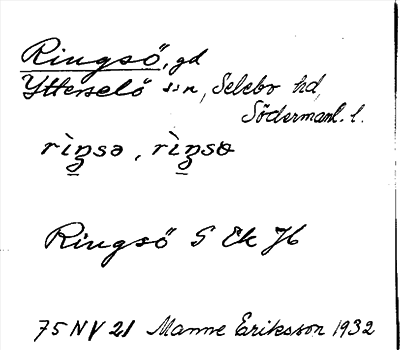 Ringsö, gd
Ytterselö sn, Selebo hd,
Södermanl. l.
rìŋsə, rìŋsɵ
Ringsö S Ek Jb
75 NV 21 Manne Eriksson 1932